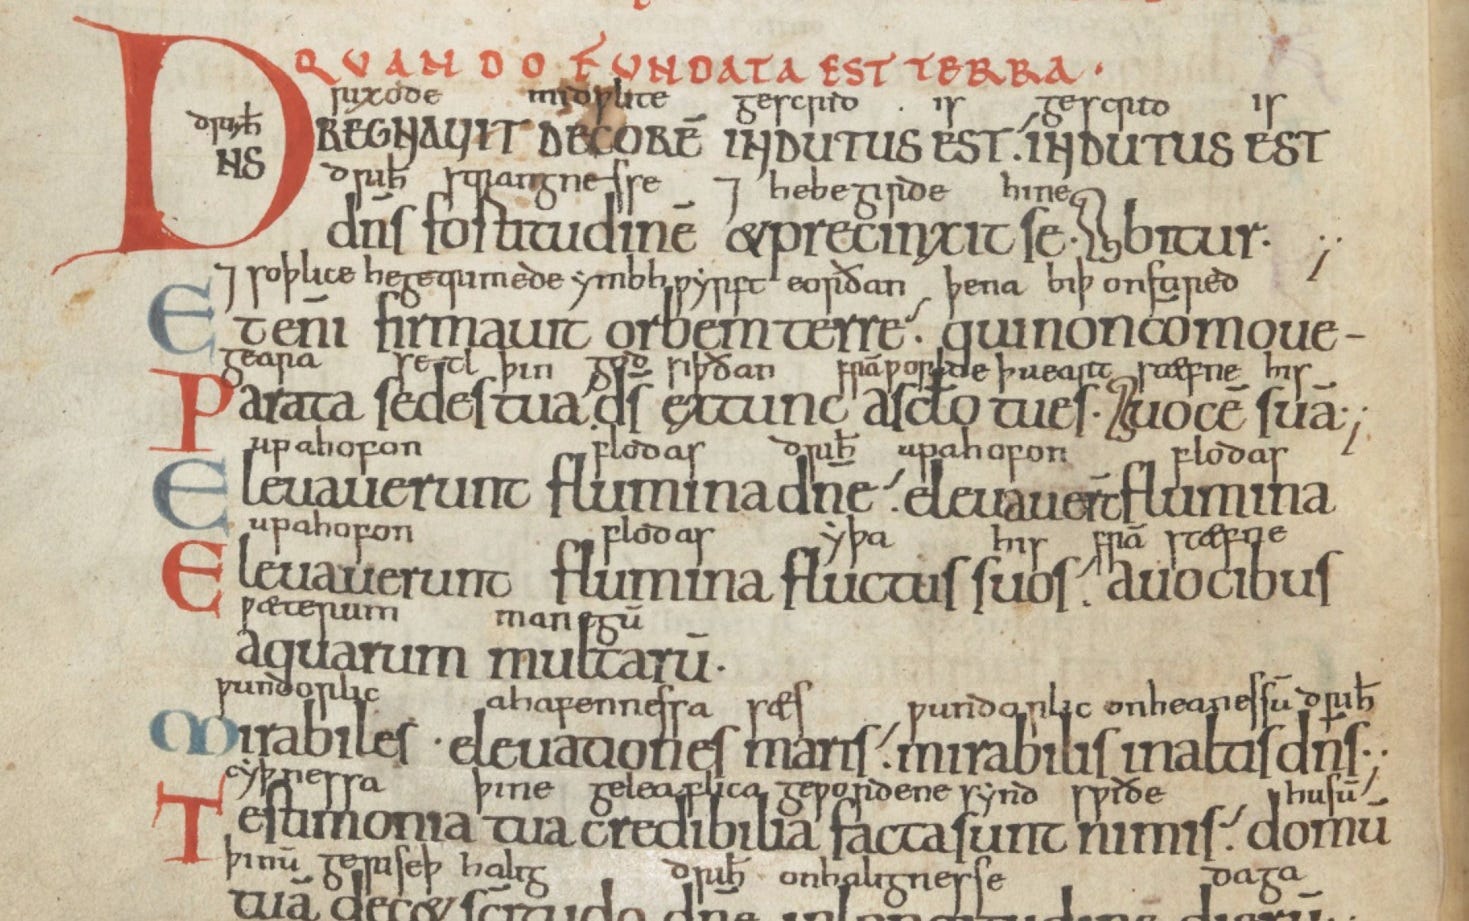 QUANDO FUNDATA EST TERRA·
rixode midwlite gescrid . is gescrid is
driht
DNS REGNAUIT DECORĒ INDUTUS EST· INDUTUS EST
driht strangnesse ⁊ hebegirde hine
dn̄s fortitudinē & precinxit se· bitur·
⁊ soþlice hegetrimede ymbhwyrft eorðan þena biþ onstired
Eteni firmauit orbem terre· qui non comoue-
geara setl þin god siþðan frā worlde þueart stæfne his
Parata sedes tua ds̄ ex tunc a sclo tu es· uocē suā·
upahofon flodas driht upahofon flodas
Eleuauerunt flumina dn̄e· eleuauer̄t flumina
upahofon flodas yþa his frā stæfne
Eleuauerunt flumina fluctus suos· a uocibus
wæterum manegū
aquarum multarū·
wundorlic ahafennessa sæs wundorlic onheanessū driht
Mirabiles · eleuationes maris· mirabilis in altis dn̄s·
cyþnessa þine geleaflica gewordene synd swiðe husū
Testimonia tua credibilia facta sunt nimis· domū
þinū geriseþ halig driht onhalignesse daga
tuā decet sc̄itudo dn̄e in longitudinē dierū·